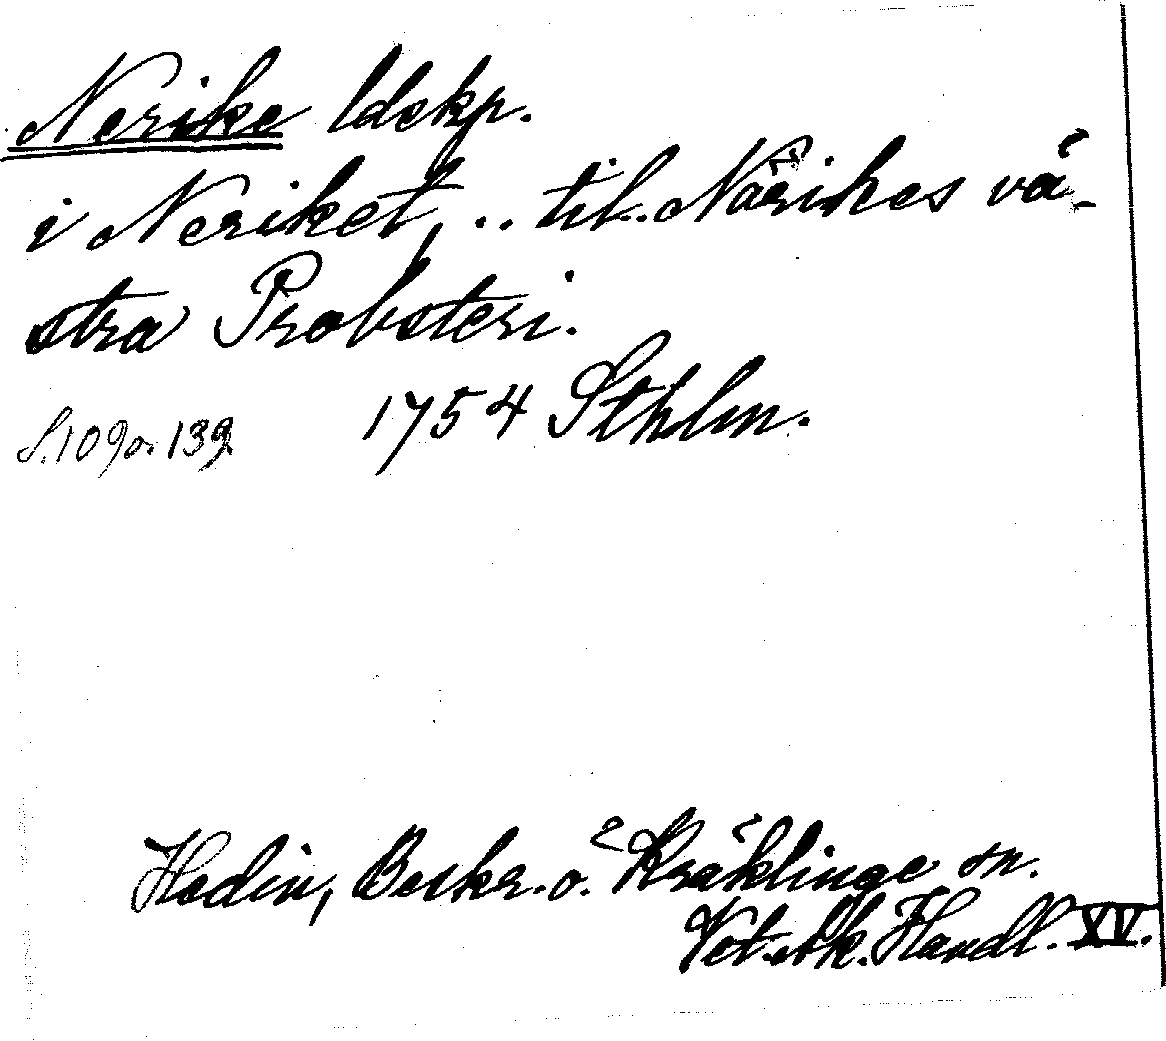 Nerike ldskp.
i Neriket, .. til.. Närikes vä-
stra Probsteri.
S. 109 o. 139 1754 Sthlm.
Hedin, Beskr. o. Kräklinge sn.
Vet. Ak. Handl. XV.